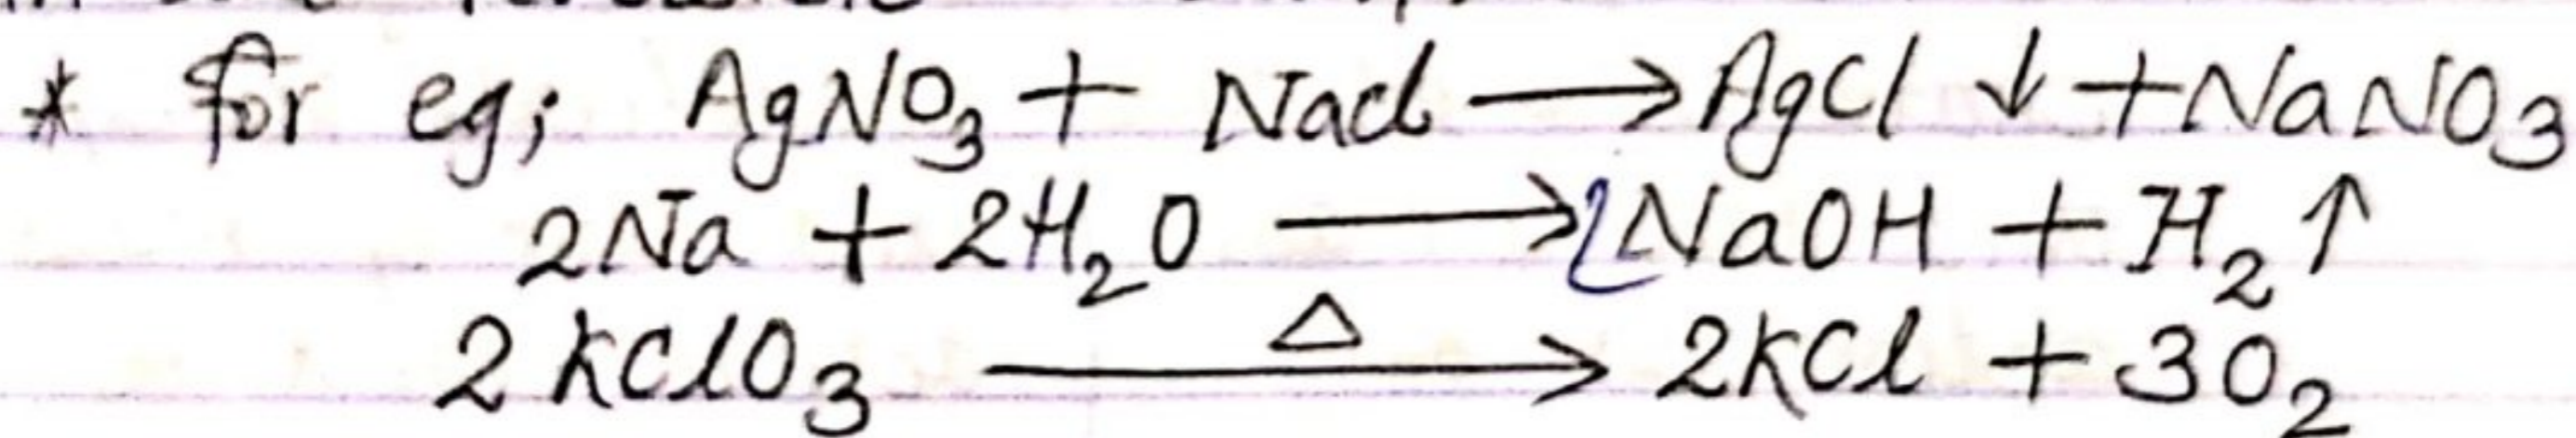 * for eg; AgNO₃ + Nacl ⟶ AgCl ↓ + NaNO₃
2Na + 2H₂O ⟶ 2NaOH + H₂ ↑
2KClO₃ —Δ→ 2KCl + 3O₂